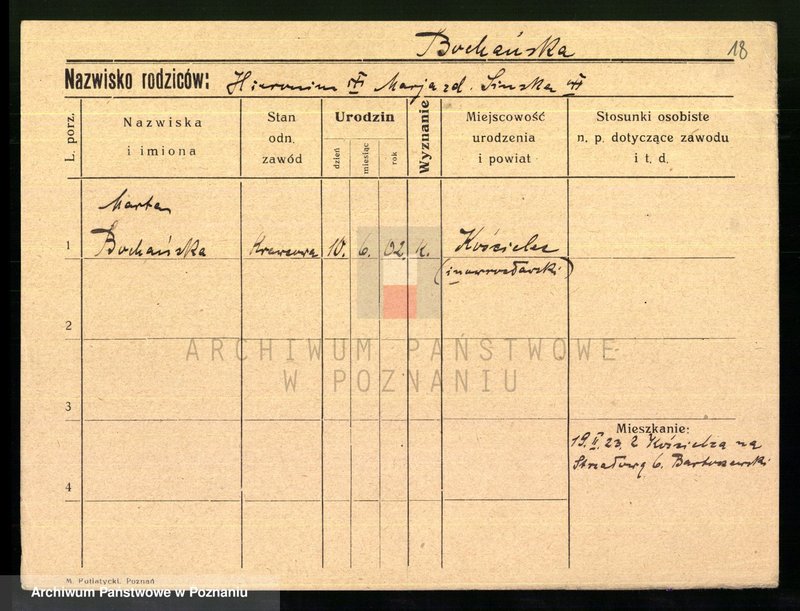 Bochańska
18
Nazwisko rodziców: Hieronim Marja zd.
L. porz.
Nazwiska i imiona
Stan odn. zawód
Urodzin
dzień
miesiąc
rok
Wyznanie
Miejscowość urodzenia i powiat
Stosunki osobiste n. p. dotyczące zawodu i t. d.
Marta
1 Bochańska Krawcowa 10. 6. 02. k. Kościelec
(inowrocławski)
2
ARCHIWUM PAŃSTWOWE
W POZNANIU
3
Mieszkanie:
19.II.23. z Kościelca na
Strzałową 6. Bartoszewski
4
M. Putiatycki, Poznań
Archiwum Państwowe w Poznaniu